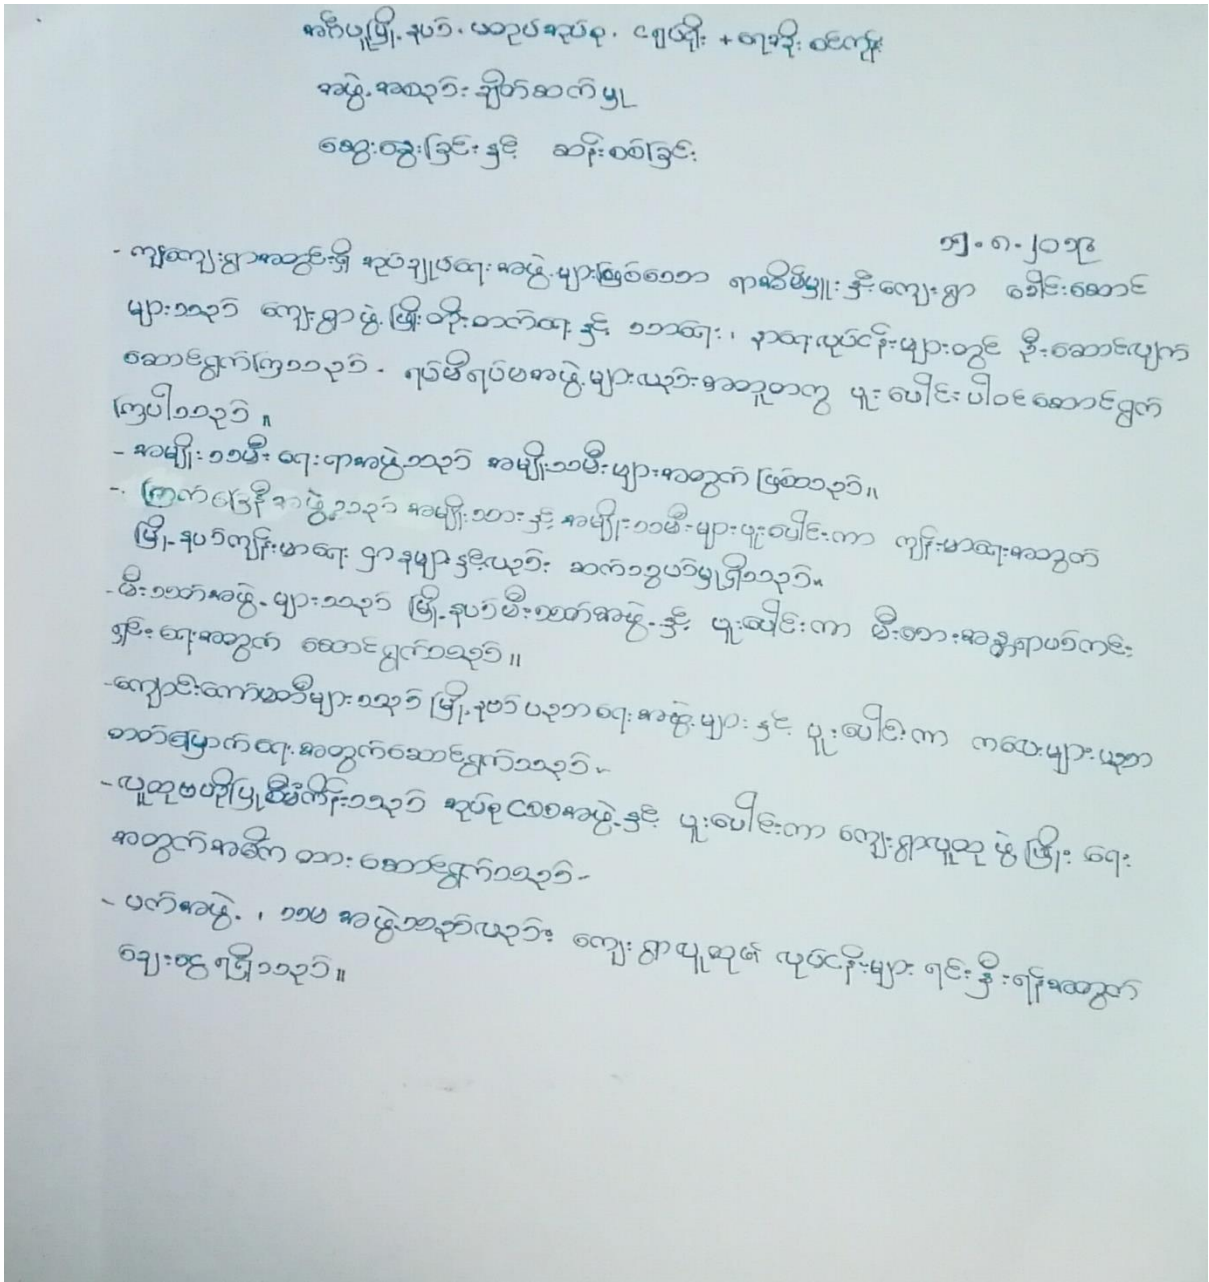 အင်္ဂပူမြို့နယ်၊ မတုပ်အုပ်စု၊ ငှေ့ကျိုး + ရေအိုး စင်ကျွန်း
အဖွဲ့အစည်း ချိတ်ဆက်မှု
ဆွေးနွေးခြင်းနှင့် ဆန်းစစ်ခြင်း
၁၅.၈.၂၀၁၄
- ကျွန်ကျေးရွာအတွင်းရှိ အုပ်ချုပ်ရေးအဖွဲ့များဖြစ်သော ရာအိမ်မှူးနှင့်ကျေးရွာ ခေါင်းဆောင်
များသည် ကျေးရွာဖွံ့ဖြိုးတိုးတက်ရေးနှင့် သာရေး၊ နာရေးလုပ်ငန်းများတွင် ဦးဆောင်လျက်
ဆောင်ရွက်ကြသည်. ရပ်မိရပ်ဖအဖွဲ့များလည်းအတူတကွ ပူးပေါင်းပါဝင်ဆောင်ရွက်
ကြပါသည်။
- အမျိုးသမီးရေးရာအဖွဲ့သည် အမျိုးသမီးများအတွက်ဖြစ်သည်။
- ကြက်ခြေနီအဖွဲ့သည် အမျိုးသားနှင့် အမျိုးသမီးများပူးပေါင်းကာ ကျန်းမာရေးအတွက်
မြို့နယ်ကျန်းမာရေး ဌာနများနှင့်လည်း ဆက်သွယ်မှုရှိသည်။
- မီးသတ်အဖွဲ့များသည် မြို့နယ်မီးသတ်အဖွဲ့နှင့် ပူးပေါင်းကာ မီးဘေးအန္တရာယ်ကင်း
ရှင်းရေးအတွက် ဆောင်ရွက်သည်။
- ကျောင်းကော်မတီများသည် မြို့နယ်ပညာရေးအဖွဲ့များနှင့် ပူးပေါင်းကာ ကလေးများပညာ
တတ်မြောက်ရေးအတွက်ဆောင်ရွက်သည်.
- လူထုဗဟိုပြုစီမံကိန်းသည် အုပ်စု အဖွဲ့နှင့် ပူးပေါင်းကာ ကျေးရွာလူထု ဖွံ့ဖြိုးရေး
အတွက်အဓိက ထားဆောင်ရွက်သည်.
- ပက်အဖွဲ့၊ သမအဖွဲ့သည်လည်း ကျေးရွာလူထု၏ လုပ်ငန်းများ ရင်းနှီးရန်အတွက်
ချေးငွေရရှိသည်။